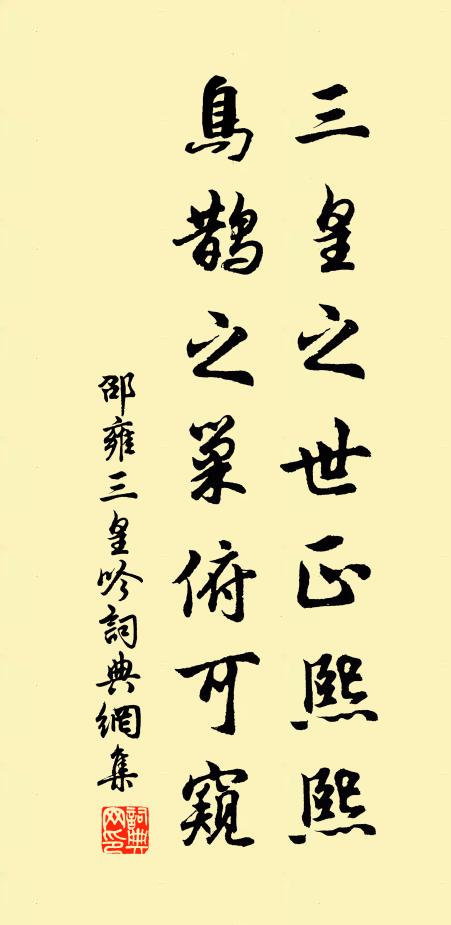 三皇之世正熙熙
鳥鵲之巢俯可窺
邵雍三皇吟詞典網集
詞典网印